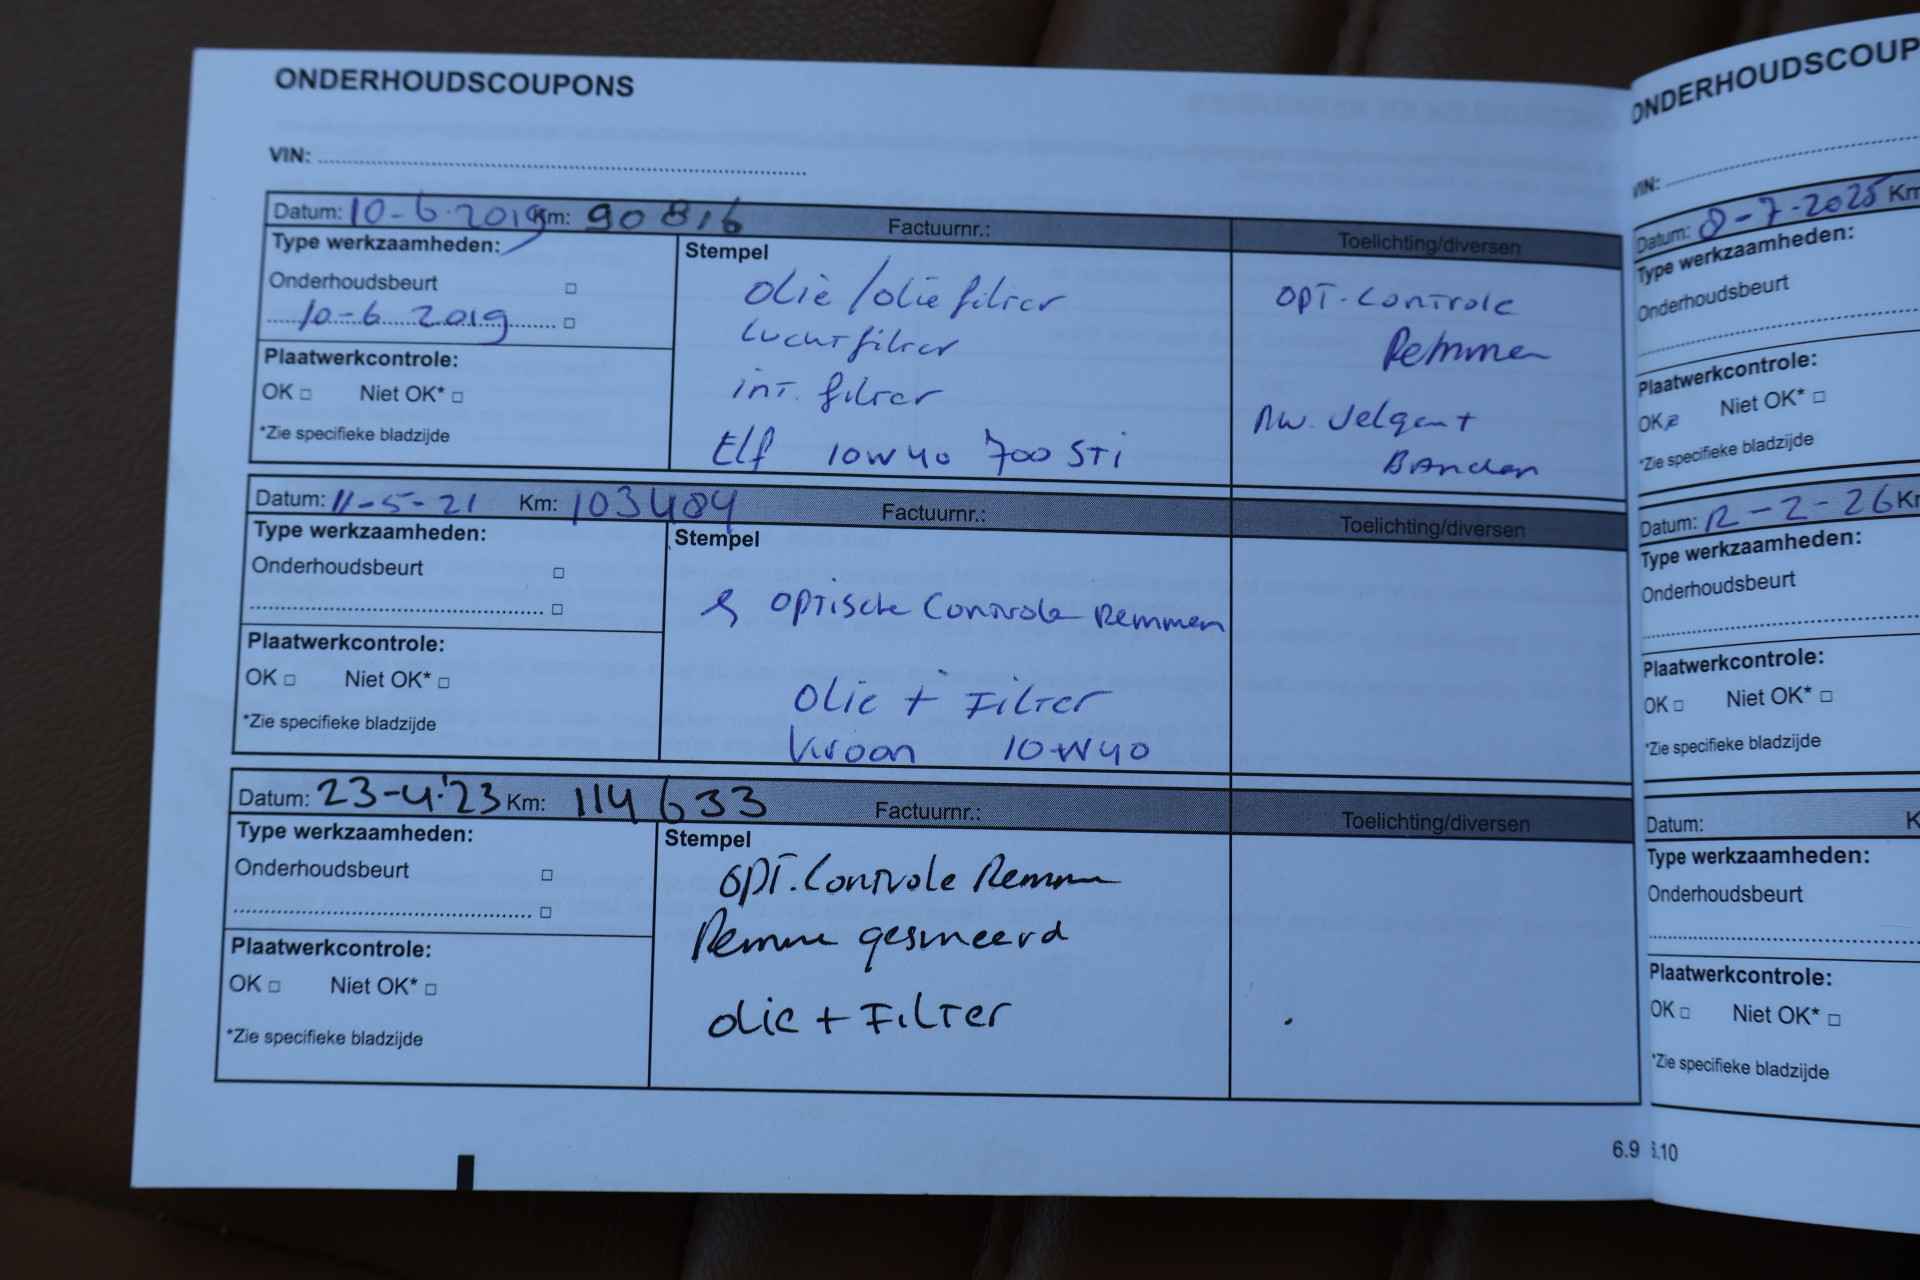 ONDERHOUDSCOUPONS
VIN:
Datum: 10-6-2019 Km: 90816 Factuurnr.: Toelichting/diversen
Type werkzaamheden:
Onderhoudsbeurt
10-6 2019
Plaatwerkcontrole:
OK Niet OK*
*Zie specifieke bladzijde
Stempel
olie/olie filter
Luchtfilter
int. filter
Elf 10w40 700 STi
opt. controle
Remmen
nw. velgen +
Banden
Datum: 11-5-21 Km: 103484 Factuurnr.: Toelichting/diversen
Type werkzaamheden:
Onderhoudsbeurt
Plaatwerkcontrole:
OK Niet OK*
*Zie specifieke bladzijde
Stempel
optische controle Remmen
olie + Filter
Kroon 10W40
Datum: 23-4-'23 Km: 114633 Factuurnr.: Toelichting/diversen
Type werkzaamheden:
Onderhoudsbeurt
Plaatwerkcontrole:
OK Niet OK*
*Zie specifieke bladzijde
Stempel
opt. controle Remmen
Remmen gesmeerd
olie + Filter
6.9
ONDERHOUDSCOUP
VIN:
Datum: 8-7-2025 Km
Type werkzaamheden:
Onderhoudsbeurt
Plaatwerkcontrole:
OK Niet OK*
*Zie specifieke bladzijde
Datum: 12-2-26 Km
Type werkzaamheden:
Onderhoudsbeurt
Plaatwerkcontrole:
OK Niet OK*
*Zie specifieke bladzijde
Datum: K
Type werkzaamheden:
Onderhoudsbeurt
Plaatwerkcontrole:
OK Niet OK*
*Zie specifieke bladzijde
6.10